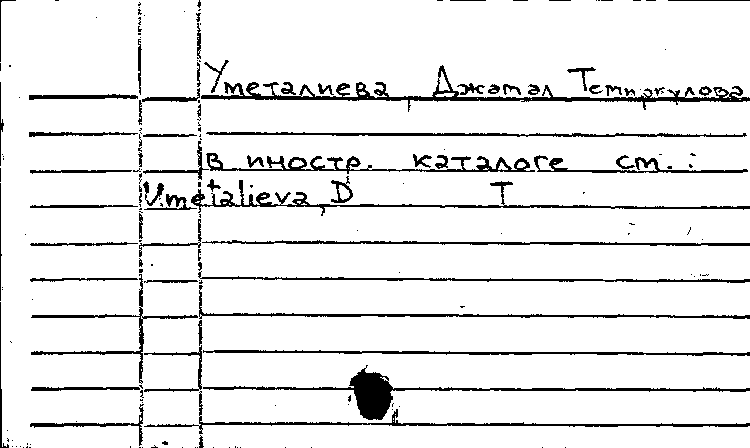 Уметалиева, Джамал Темиркулова
в иностр. каталоге см.:
Umetalieva, D T